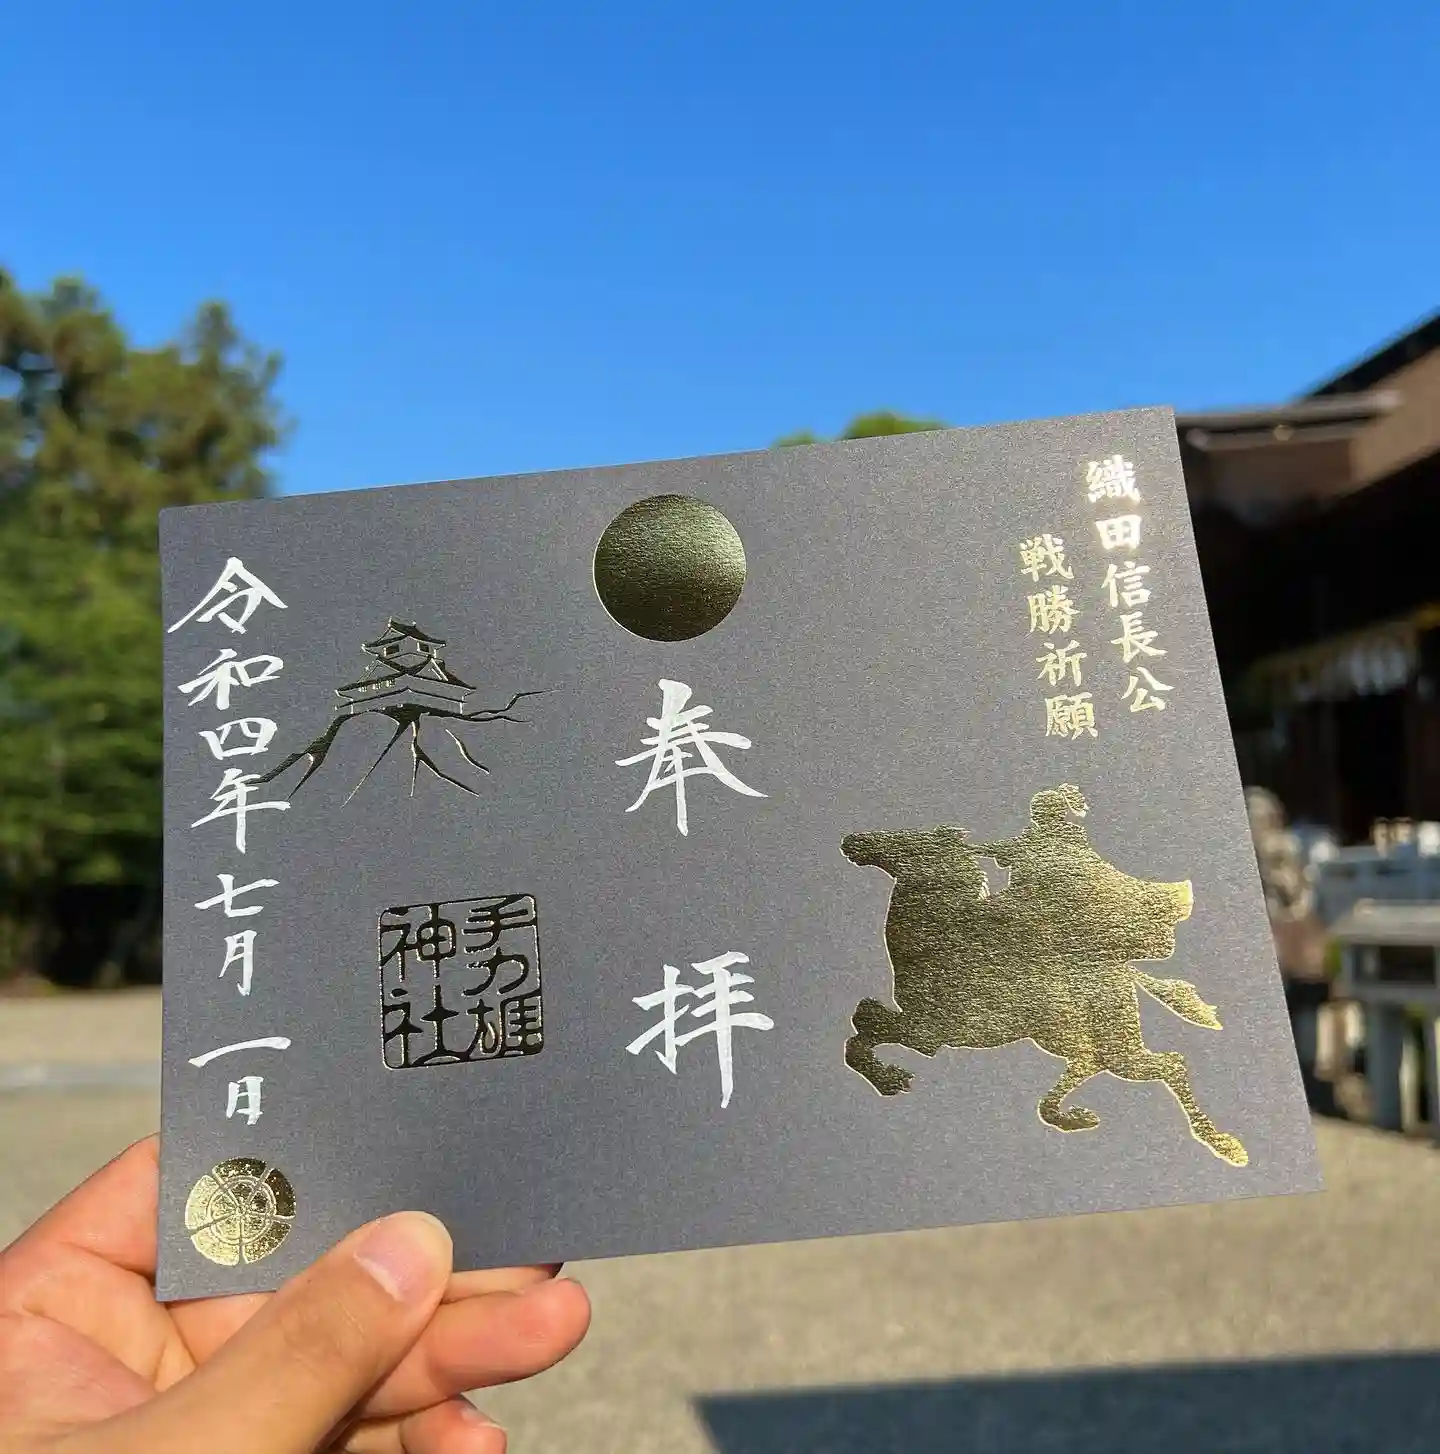 織田信長公
戦勝祈願
奉拝
手力雄
神社
令和四年七月一日